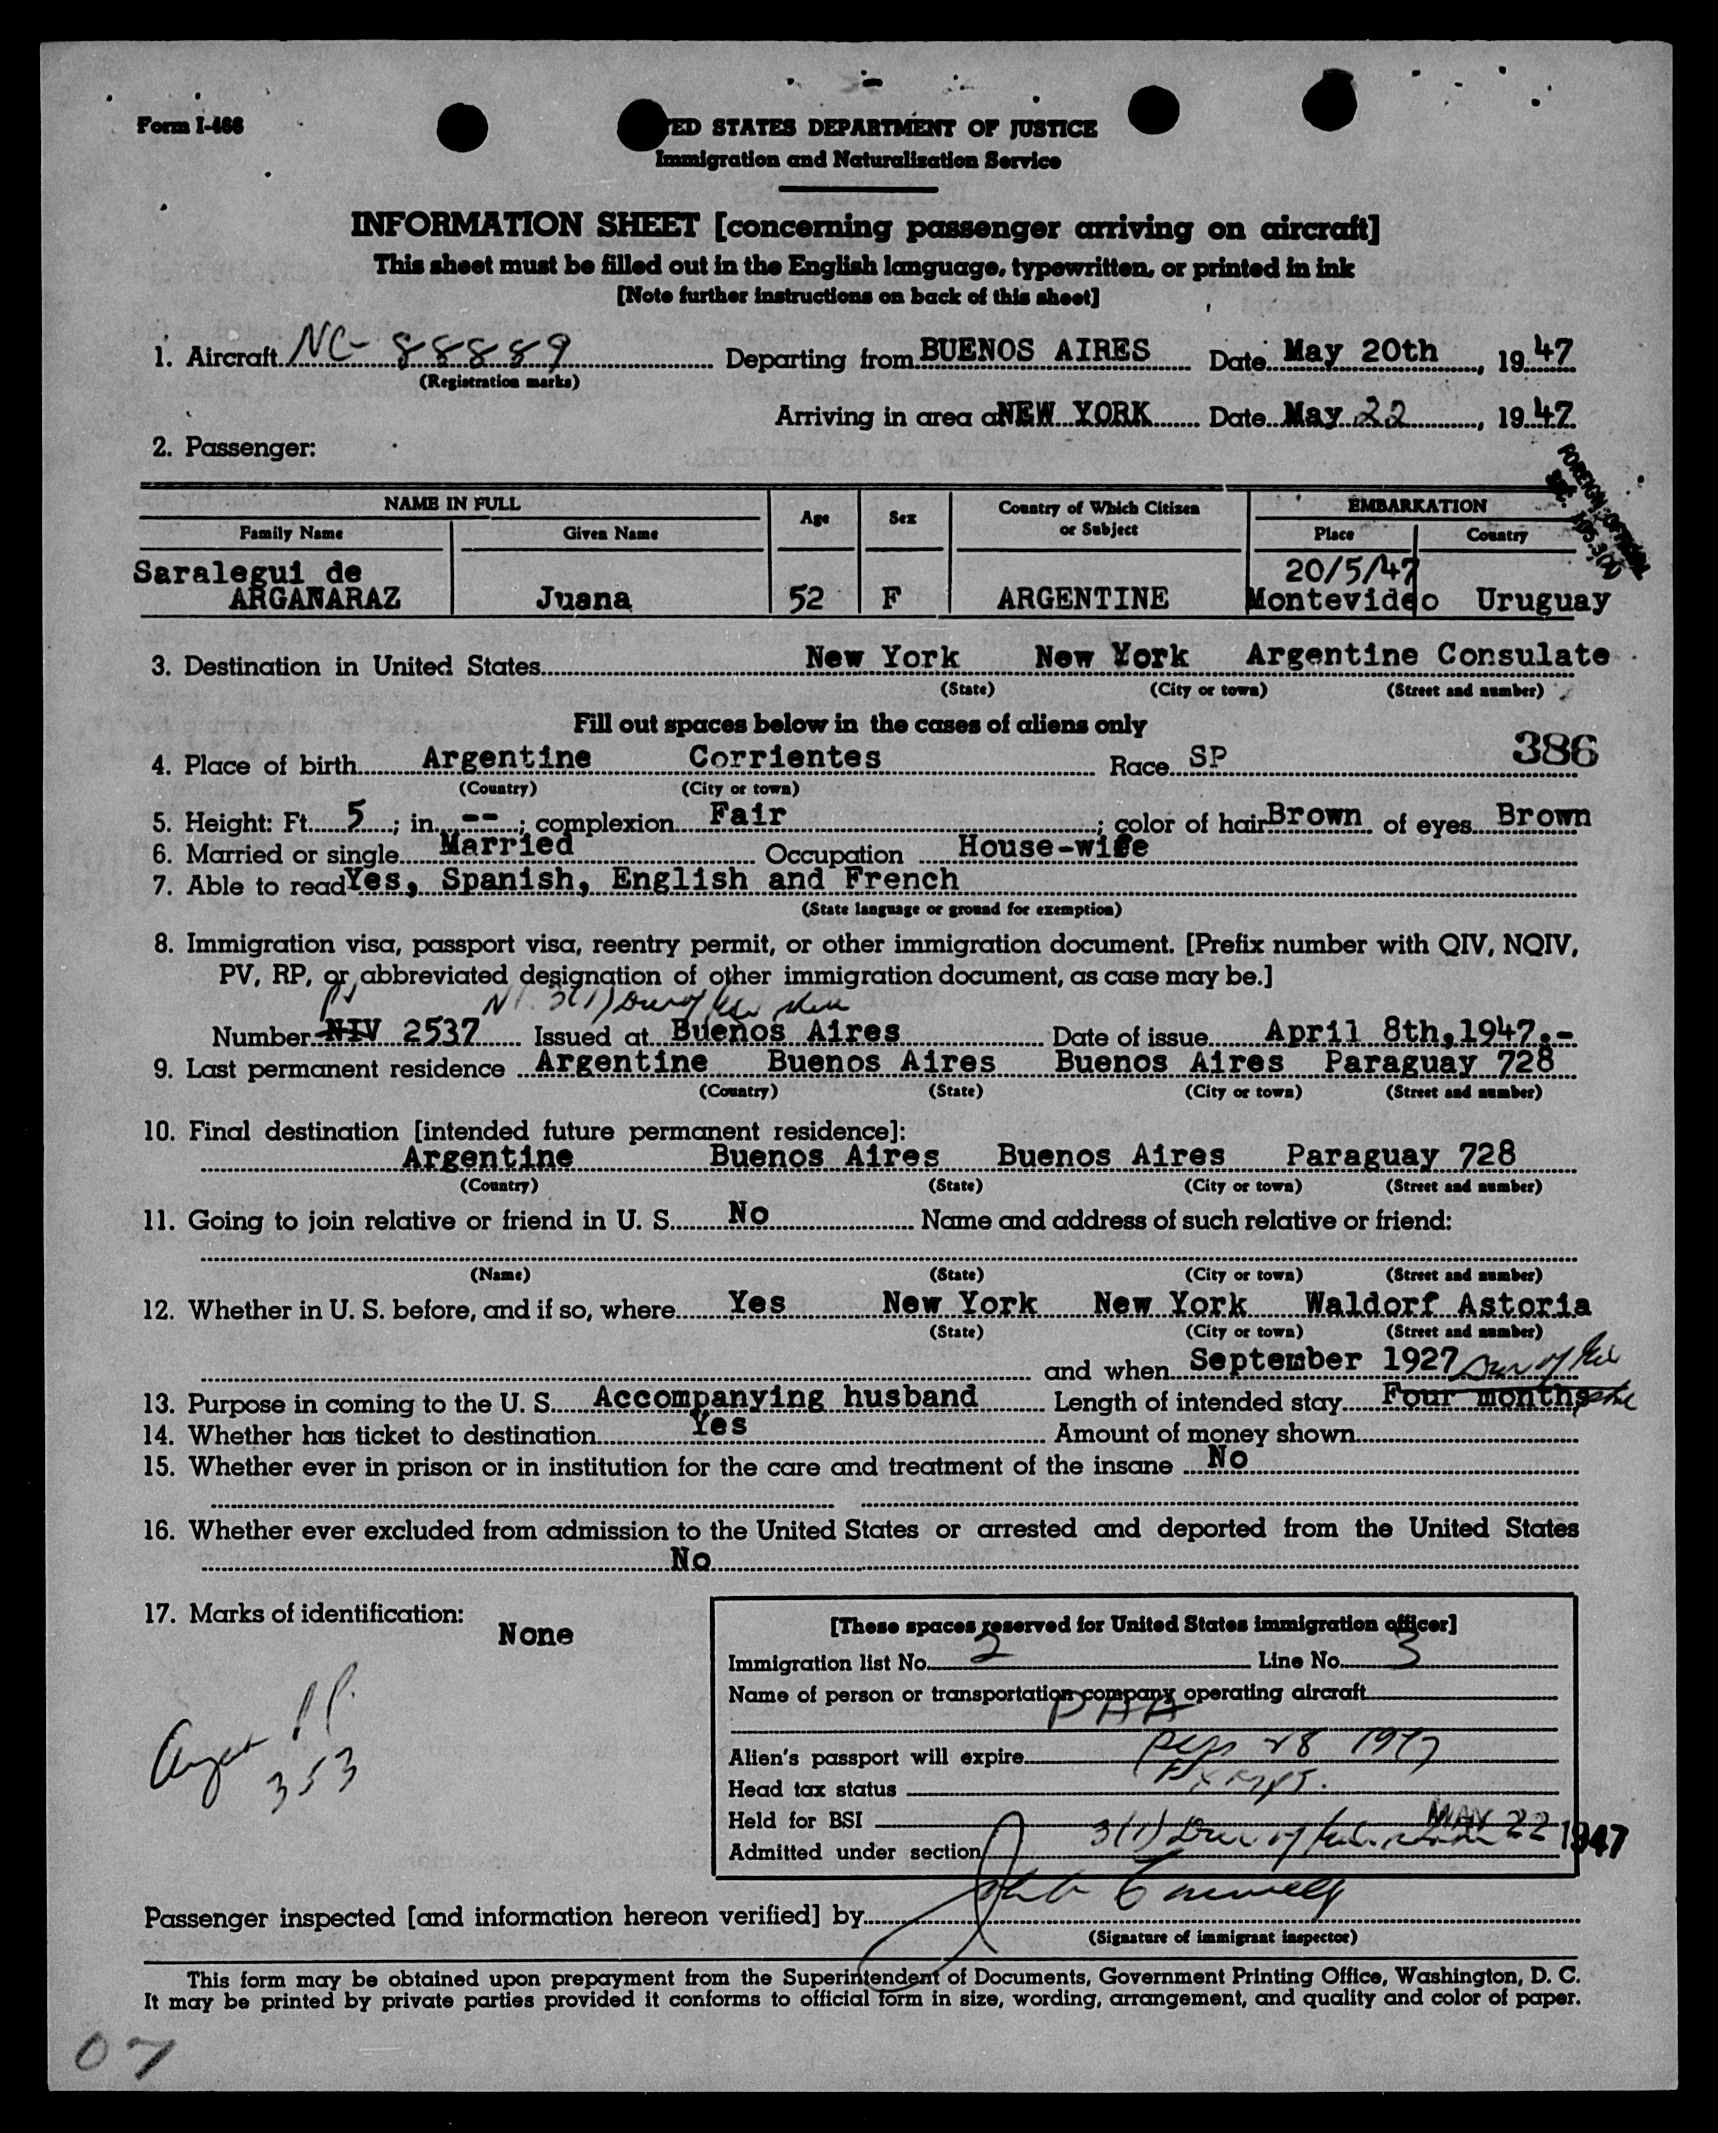 Form I-466
ED STATES DEPARTMENT OF JUSTICE
Immigration and Naturalization Service
INFORMATION SHEET [concerning passenger arriving on aircraft]
This sheet must be filled out in the English language, typewritten, or printed in ink
[Note further instructions on back of this sheet]
1. Aircraft NC-88889 Departing from BUENOS AIRES Date May 20th, 1947
(Registration marks)
Arriving in area a NEW YORK Date May 22, 1947
2. Passenger:
FOREIGN
NAME IN FULL Age Sex Country of Which Citizen or Subject EMBARKATION
Family Name Given Name Place Country
Saralegui de 20/5/47
ARGAÑARAZ Juana 52 F ARGENTINE Montevideo Uruguay
3. Destination in United States New York New York Argentine Consulate
(State) (City or town) (Street and number)
Fill out spaces below in the cases of aliens only
386
4. Place of birth Argentine Corrientes Race SP
(Country) (City or town)
5. Height: Ft. 5; in. --; complexion Fair; color of hair Brown of eyes Brown
6. Married or single Married Occupation House-wife
7. Able to read Yes, Spanish, English and French
(State language or ground for exemption)
8. Immigration visa, passport visa, reentry permit, or other immigration document. [Prefix number with QIV, NQIV,
PV, RP, or abbreviated designation of other immigration document, as case may be.]
3(1)
Number NIV 2537 Issued at Buenos Aires Date of issue April 8th, 1947.-
9. Last permanent residence Argentine Buenos Aires Buenos Aires Paraguay 728
(Country) (State) (City or town) (Street and number)
10. Final destination [intended future permanent residence]:
Argentine Buenos Aires Buenos Aires Paraguay 728
(Country) (State) (City or town) (Street and number)
11. Going to join relative or friend in U. S. No Name and address of such relative or friend:
(Name) (State) (City or town) (Street and number)
12. Whether in U. S. before, and if so, where Yes New York New York Waldorf Astoria
(State) (City or town) (Street and number)
and when September 1927
13. Purpose in coming to the U. S. Accompanying husband Length of intended stay Four months
14. Whether has ticket to destination Yes Amount of money shown
15. Whether ever in prison or in institution for the care and treatment of the insane No
16. Whether ever excluded from admission to the United States or arrested and deported from the United States
No
17. Marks of identification: None
353
[These spaces reserved for United States immigration officer]
Immigration list No. 2 Line No. 3
Name of person or transportation company operating aircraft
PAA
Alien's passport will expire 28 1947
Head tax status Exempt.
Held for BSI MAY 22 1947
Admitted under section 3(1)
Passenger inspected [and information hereon verified] by
(Signature of immigrant inspector)
This form may be obtained upon prepayment from the Superintendent of Documents, Government Printing Office, Washington, D. C.
It may be printed by private parties provided it conforms to official form in size, wording, arrangement, and quality and color of paper.
07